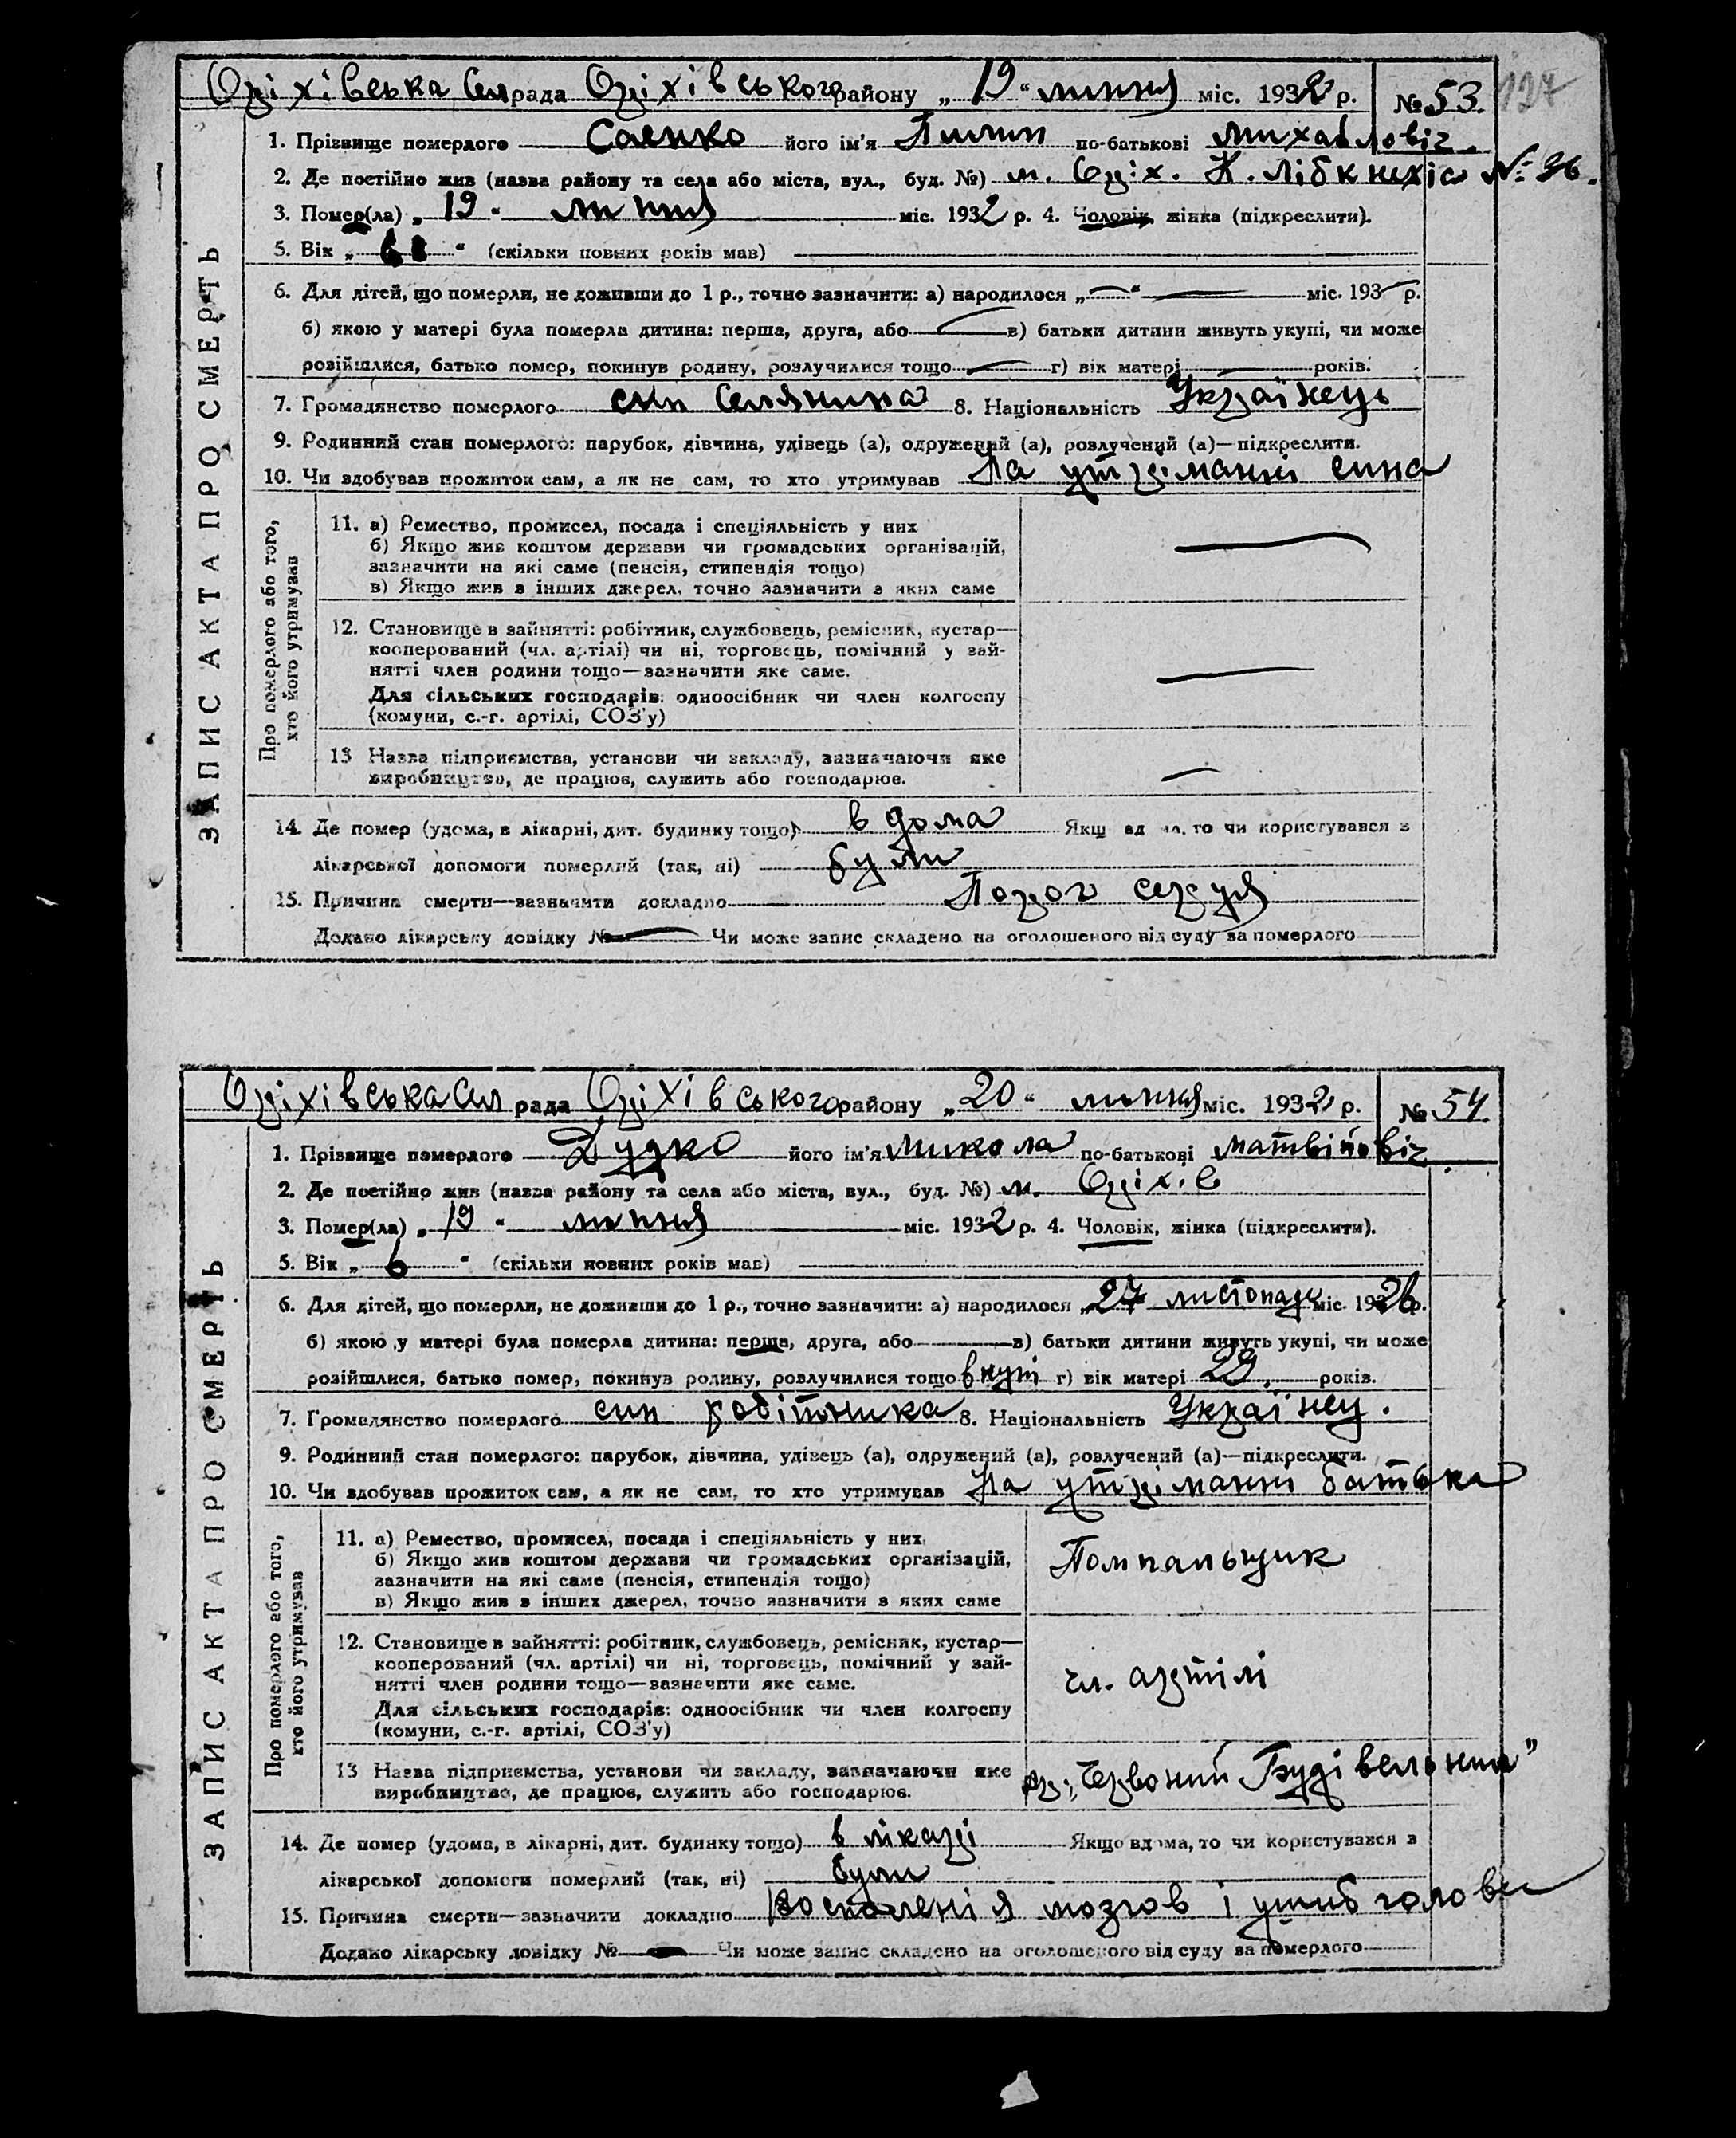 Оріхівська Сел рада Оріхівського району „19“ липня міс. 1932 р. № 53. 127
1. Прізвище померлого Саенко його ім'я Пилип по-батькові Михайловіч.
2. Де постійно жив (назва району та села або міста, вул., буд. №) м. Оріх. К. Лібкнехта № 96.
3. Помер(ла) „19“ липня міс. 1932 р. 4. Чоловік, жінка (підкреслити).
5. Вік „ “ (скільки повних років мав)
6. Для дітей, що померли, не доживши до 1 р., точно зазначити: а) народилося „—“ — міс. 193— р.
б) якою у матері була померла дитина: перша, друга, або — в) батьки дитини живуть укупі, чи може
розійшлися, батько помер, покинув родину, розлучилися тощо — г) вік матері — років.
7. Громадянство померлого син Селянина 8. Національність Українець
9. Родинний стан померлого: парубок, дівчина, удівець (а), одружений (а), розлучений (а)—підкреслити.
10. Чи здобував прожиток сам, а як не сам, то хто утримував На утріманні сина
ЗАПИС АКТА ПРО СМЕРТЬ
Про померлого або того,
хто його утримував
11. а) Ремество, промисел, посада і спеціяльність у них
б) Якщо жив коштом держави чи громадських організацій,
зазначити на які саме (пенсія, стипендія тощо)
в) Якщо жив з інших джерел, точно зазначити з яких саме —
12. Становище в зайнятті: робітник, службовець, ремісник, кустар—
кооперований (чл. артілі) чи ні, торговець, помічний у зай-
нятті член родини тощо—зазначити яке саме. —
Для сільських господарів: одноосібник чи член колгоспу
(комуни, с.-г. артілі, СОЗ'у)
13 Назва підприємства, установи чи закладу, зазначаючи яке
виробництво, де працює, служить або господарює. —
14. Де помер (удома, в лікарні, дит. будинку тощо) в дома Якщо вдома, то чи користувався з
лікарської допомоги померлий (так, ні) були
15. Причина смерти—зазначити докладно Порог серця
Додано лікарську довідку № — Чи може запис складено на оголошеного від суду за померлого
Оріхівська Сел рада Оріхівського району „20“ липня міс. 1932 р. № 54.
1. Прізвище померлого Дудко його ім'я Микола по-батькові Матвійовіч
2. Де постійно жив (назва району та села або міста, вул., буд. №) м. Оріхів
3. Помер(ла) „19“ липня міс. 1932 р. 4. Чоловік, жінка (підкреслити).
5. Вік „6“ (скільки повних років мав)
6. Для дітей, що померли, не доживши до 1 р., точно зазначити: а) народилося „27 листопаду міс. 1926 р.
б) якою у матері була померла дитина: перша, друга, або в) батьки дитини живуть укупі, чи може
розійшлися, батько помер, покинув родину, розлучилися тощо вкупі г) вік матері 29. років.
7. Громадянство померлого син робітника 8. Національність Українец.
9. Родинний стан померлого: парубок, дівчина, удівець (а), одружений (а), розлучений (а)—підкреслити.
10. Чи здобував прожиток сам, а як не сам, то хто утримував На утріманні батька
ЗАПИС АКТА ПРО СМЕРТЬ
Про померлого або того,
хто його утримував
11. а) Ремество, промисел, посада і спеціяльність у них
б) Якщо жив коштом держави чи громадських організацій,
зазначити на які саме (пенсія, стипендія тощо)
в) Якщо жив з інших джерел, точно зазначити з яких саме
12. Становище в зайнятті: робітник, службовець, ремісник, кустар—
кооперований (чл. артілі) чи ні, торговець, помічний у зай-
нятті член родини тощо—зазначити яке саме. чл. артілі
Для сільських господарів: одноосібник чи член колгоспу
(комуни, с.-г. артілі, СОЗ'у)
13 Назва підприємства, установи чи закладу, зазначаючи яке
виробництво, де працює, служить або господарює. ар. „Червоний Будівельник"
14. Де помер (удома, в лікарні, дит. будинку тощо) в лікарні Якщо вдома, то чи користувався з
лікарської допомоги померлий (так, ні) були
15. Причина смерти—зазначити докладно Воспаленія мозгов і ушиб голови
Додано лікарську довідку № — Чи може запис складено на оголошеного від суду за померлого